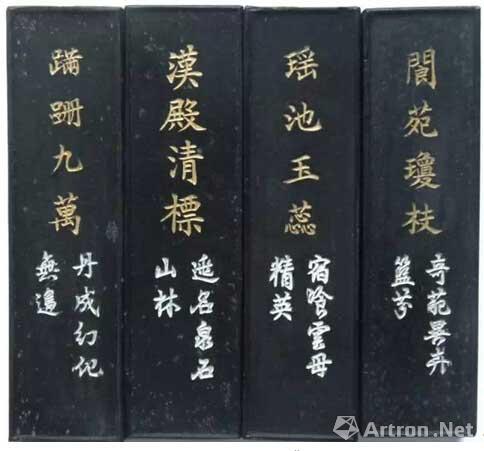 閬苑瓊枝
異卉
瑶池玉蕊
雲母
精英
漢殿清標
名泉石
山林
蹣跚九萬
丹成幻化
無邊
Artron.Net